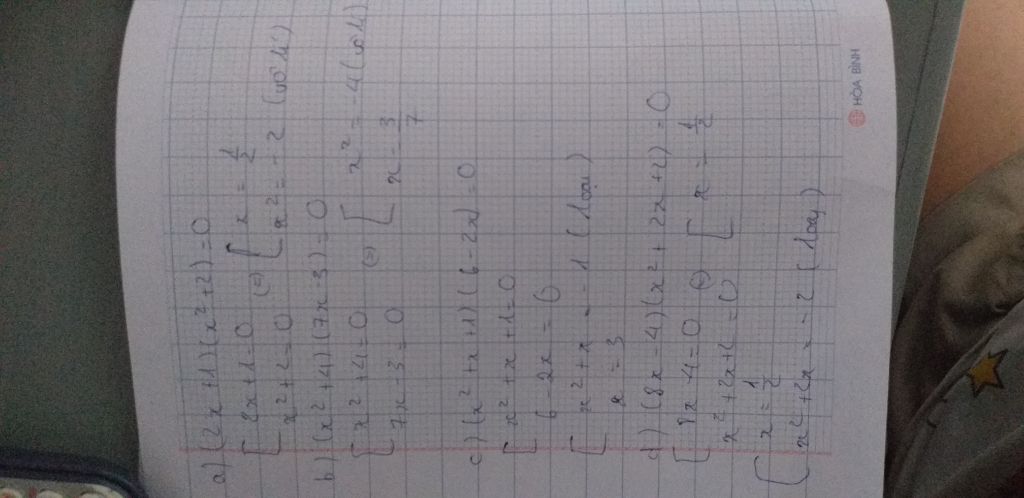 a) (2x+1)(x²+2)=0
[ 2x+1=0 (=) [ x = 1/2
x²+2=0 x² = -2 (vô lí)
b) (x²+4)(7x-3)=0
[ x²+4=0 (=) [ x² = -4 (vô lí)
7x-3=0 x = 3/7
c) (x²+x+1)(6-2x)=0
[ x²+x+1=0
6-2x=0
[ x²+x = -1 (loại)
x = 3
d) (8x-4)(x²+2x+2)=0
[ 8x-4=0 (=) [ x = 1/2
x²+2x+2=0
[ x = 1/2
x²+2x = -2 (loại)
HÒA BÌNH